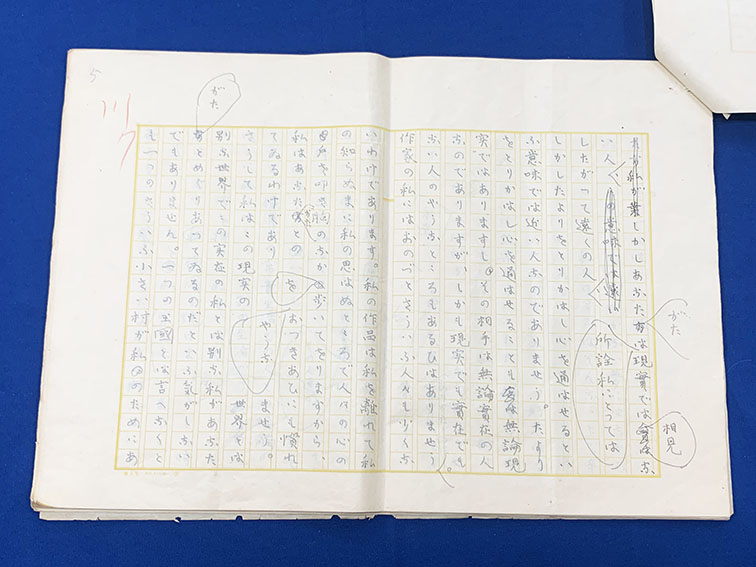 しかしあなたがたは現實では相見はぬ
い人 所詮私にとつては
したがつて遠くの人
しかしたよりをとりかはし心を通はせるとい
ふ意味では近い人なのでありませう。たより
をとりかはし心を通はせることも無論現
実ではありますし、その相手は無論實在の人
なのでありますが、しかも現実でも實在でも
ない人のやうなところもあるひはありませう。
作家の私にはおのづとさういふ人々も少くな
いわけであります。私の作品は私を離れて私
の知らぬまに私の思はぬところで人々の心の
戸を叩き胸のなかに歩いてをりますから、
私はあなたがたとのおつきあひにも慣れ
てゐるわけでありませう。
さうして私はこの現実のやうな世界とは
別な世界でこの実在の私とは別な私があなた
がたとめぐりあつてゐるのだといふ気がしない
でもありません。一つの王國とは言へなくと
も一つのさういふ小さい村が私のためにあ
5
川
7